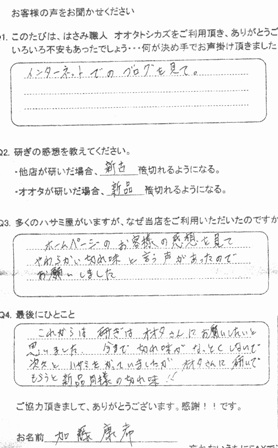 お客様の声をお聞かせください
Q1. このたびは、はさみ職人 オオタトシカズをご利用頂き、ありがとうご
いろいろ不安もあったでしょう・・・何が決め手でお声掛け頂きました
インターネットでのブログを見て。
Q2. 研ぎの感想を教えてください。
・他店が研いだ場合、 新古 箱切れるようになる。
・オオタが研いだ場合、 新品 箱切れるようになる。
Q3. 多くのハサミ屋がいますが、なぜ当店をご利用いただいたのですか
ホームページのお客様の感想を見て
やわらかい切れ味と言う声があったので
お願いしました
Q4. 最後にひとこと
これからは研ぎはオオタさんにお願いしたいと
思いました 今まで切れ味がなっとくしないで
次々とハサミをかっていましたが オオタさんに研いで
もらうと新品同様の切れ味!!
ご協力頂きまして、ありがとうございます。感謝!!です。
お名前 加藤